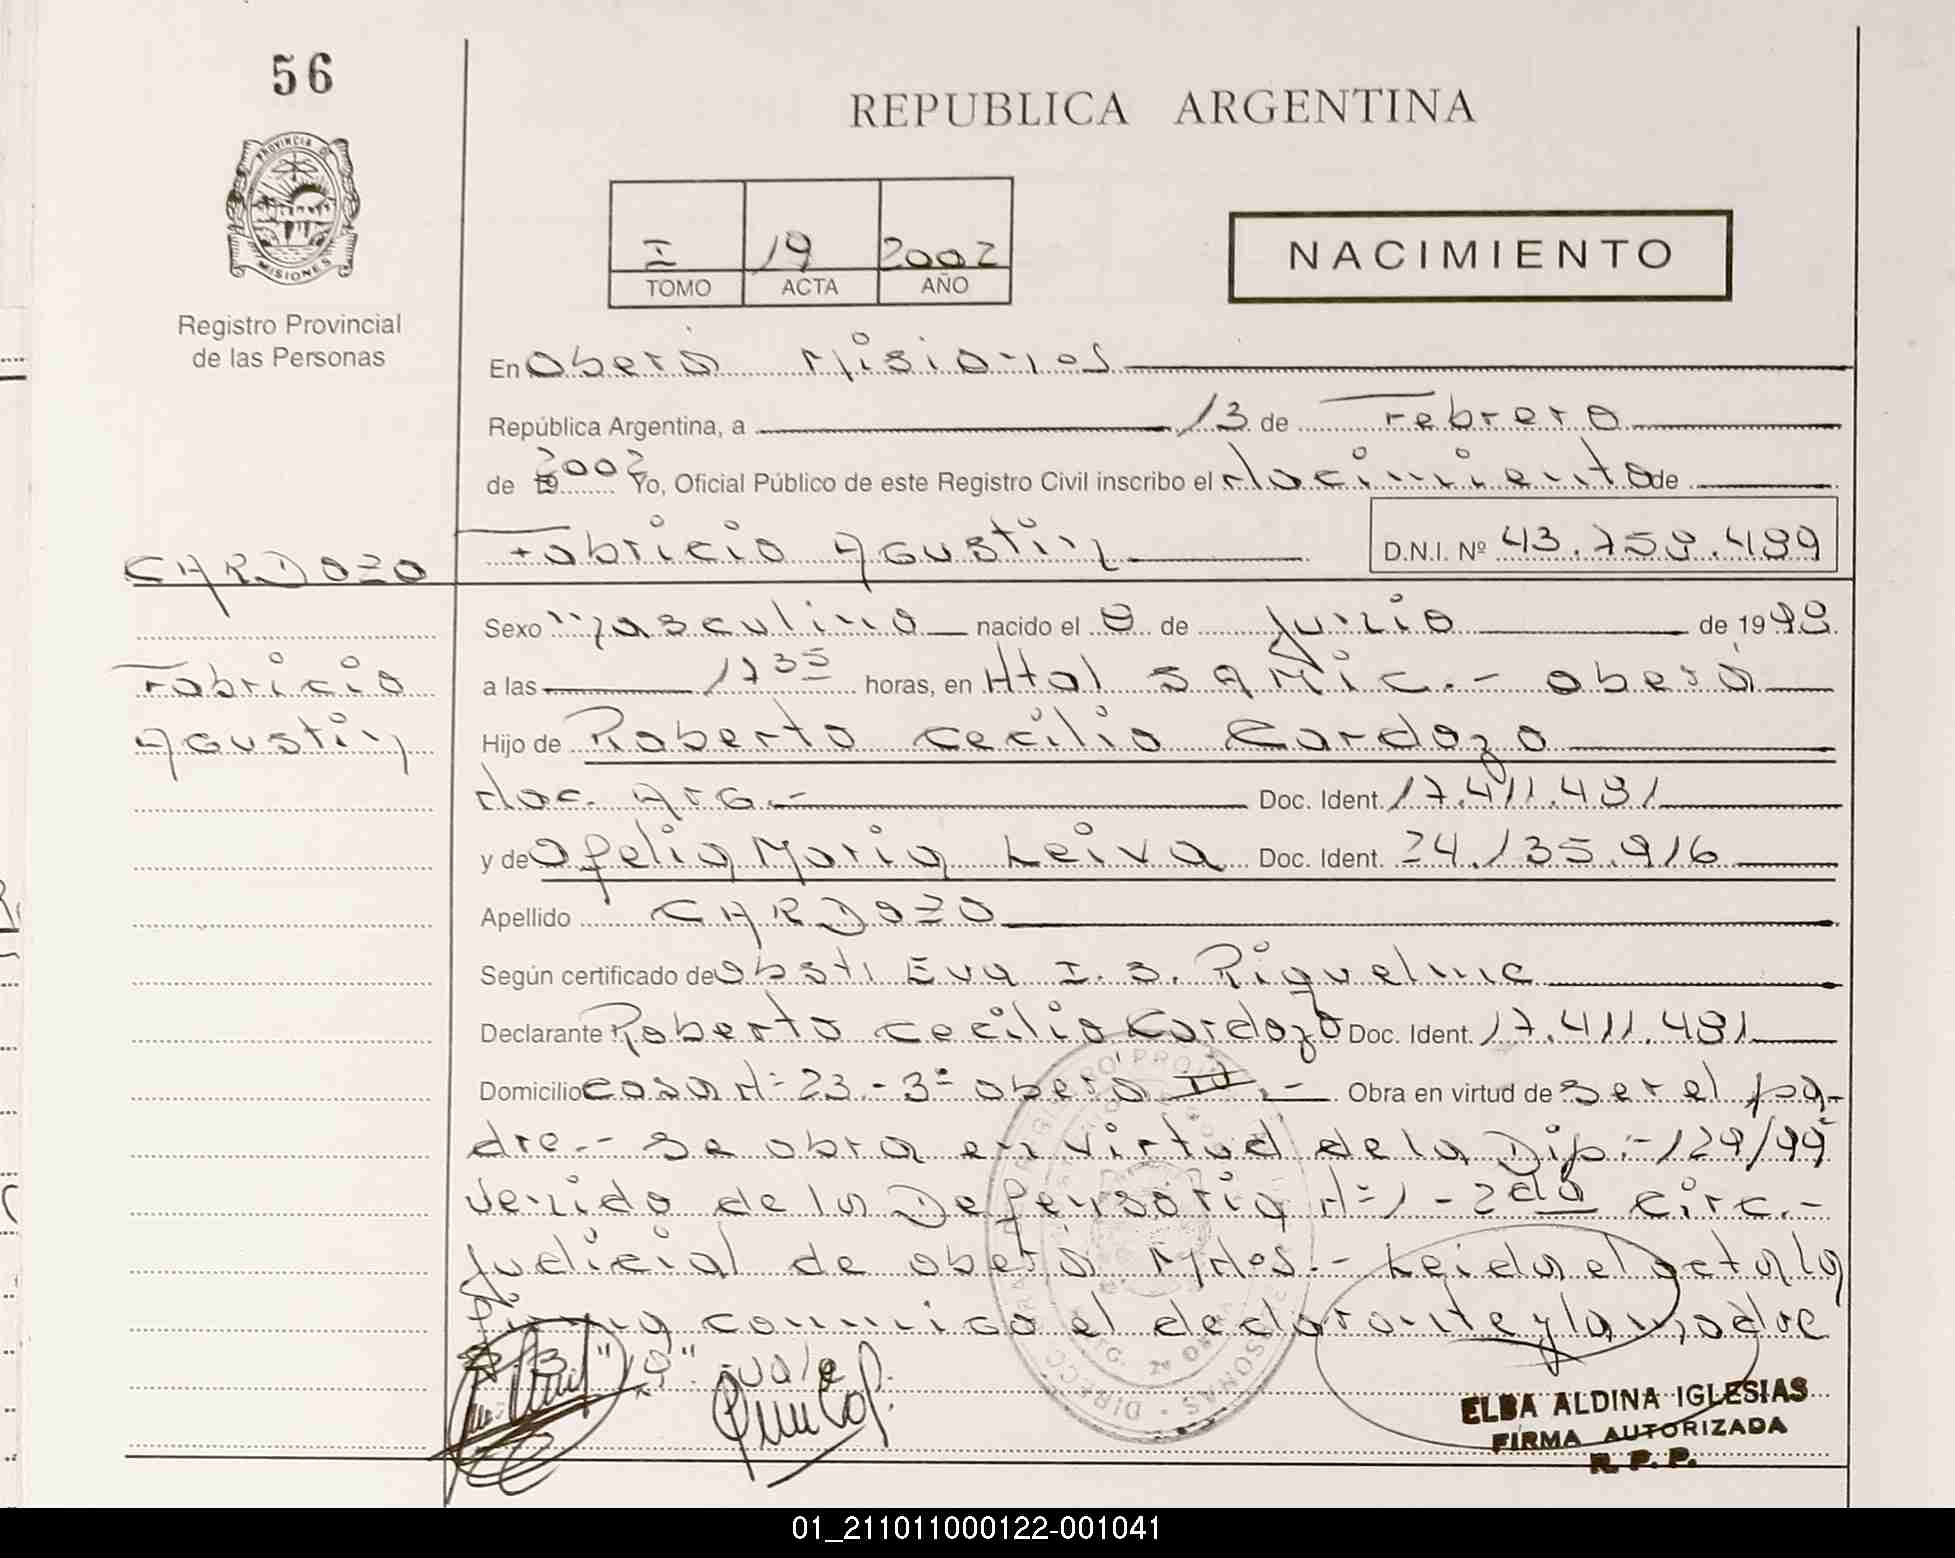 56
REPUBLICA ARGENTINA
PROVINCIA DE
MISIONES
Registro Provincial
de las Personas
I 19 2002
TOMO ACTA AÑO
NACIMIENTO
En Oberá Misiones
República Argentina, a 13 de Febrero
de 19 2002 Yo, Oficial Público de este Registro Civil inscribo el Nacimiento de
CARDOZO
Fabricio Agustin D.N.I. Nº 43.759.499
Sexo Masculino nacido el 8 de Junio de 1998
Fabricio
Agustin
a las 17 35 horas, en Htal SAMic.- Oberá
Hijo de Roberto Cecilio Cardozo
Nac. Arg.- Doc. Ident. 17.411.491
y de Ofelia Maria Leiva Doc. Ident. 24.135.916
Apellido CARDOZO
Según certificado de Obst. Eva I. B. Riquelme
Declarante Roberto Cecilio Cardozo Doc. Ident. 17.411.491
Domicilio casa Nº 23 - 3º Oberá IV.- Obra en virtud de ser el pa-
dre.- Se obra en virtud de la Dip.- 129/99
venido de la Defensoria Nº 1 - 2da Circ.-
Judicial de Oberá Mnes.- Leida el acta la
firma conmigo el declarante y la madre
vale
ELBA ALDINA IGLESIAS
FIRMA AUTORIZADA
R. P. P.
01_211011000122-001041